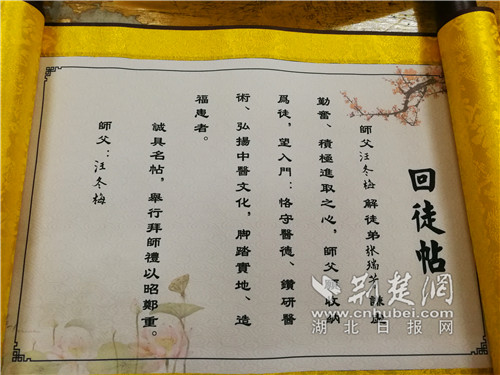 回徒帖
師父汪冬梅解徒弟张瑞
勤奮、積極進取之心,師父收納
爲徒,望入門:恪守醫德、鑽研醫
術、弘揚中醫文化,脚踏實地、造
福患者。
誠具名帖,舉行拜師禮以昭鄭重。
師父:汪冬梅
荆楚網
www.cnhubei.com
湖北日报网